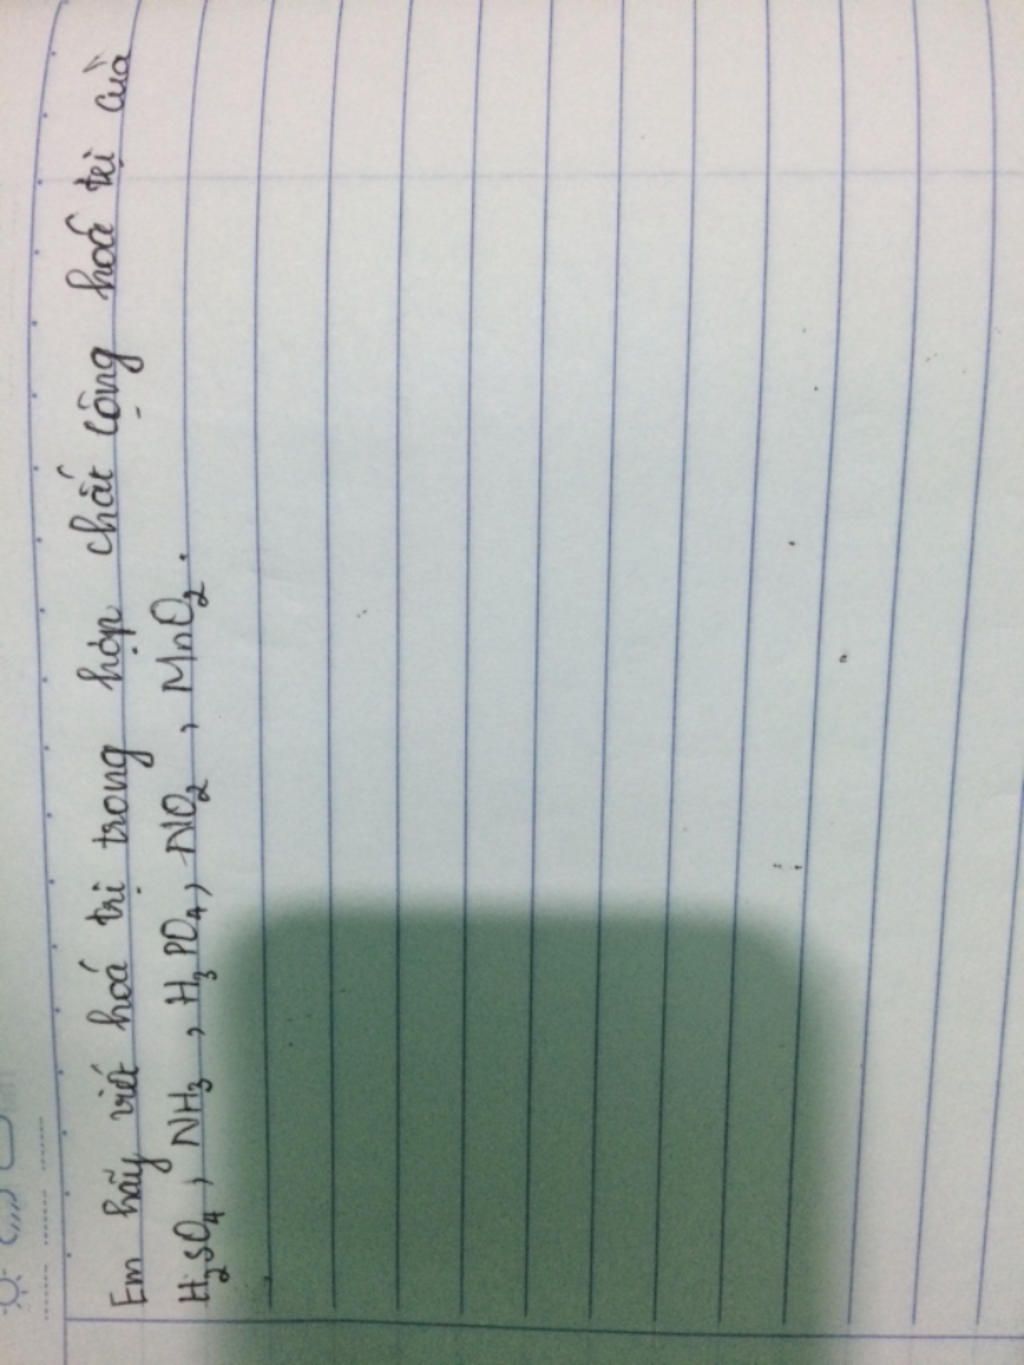 Em hãy viết hoá trị trong hợp chất cộng hoá trị của
H₂SO₄, NH₃, H₃PO₄, NO₂, MnO₂.